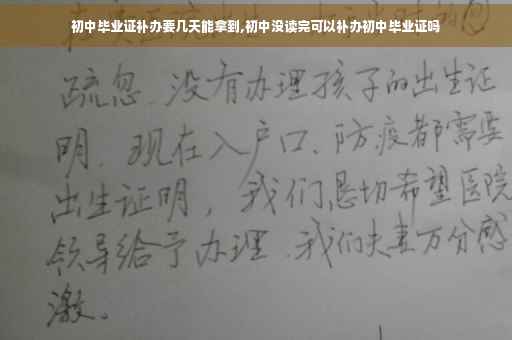 初中毕业证补办要几天能拿到,初中没读完可以补办初中毕业证吗
疏忽、没有办理孩子的出生证
明、现在入户口、防疫都需要
出生证明,我们恳切希望医院
领导给予办理、我们夫妻万分感
激。